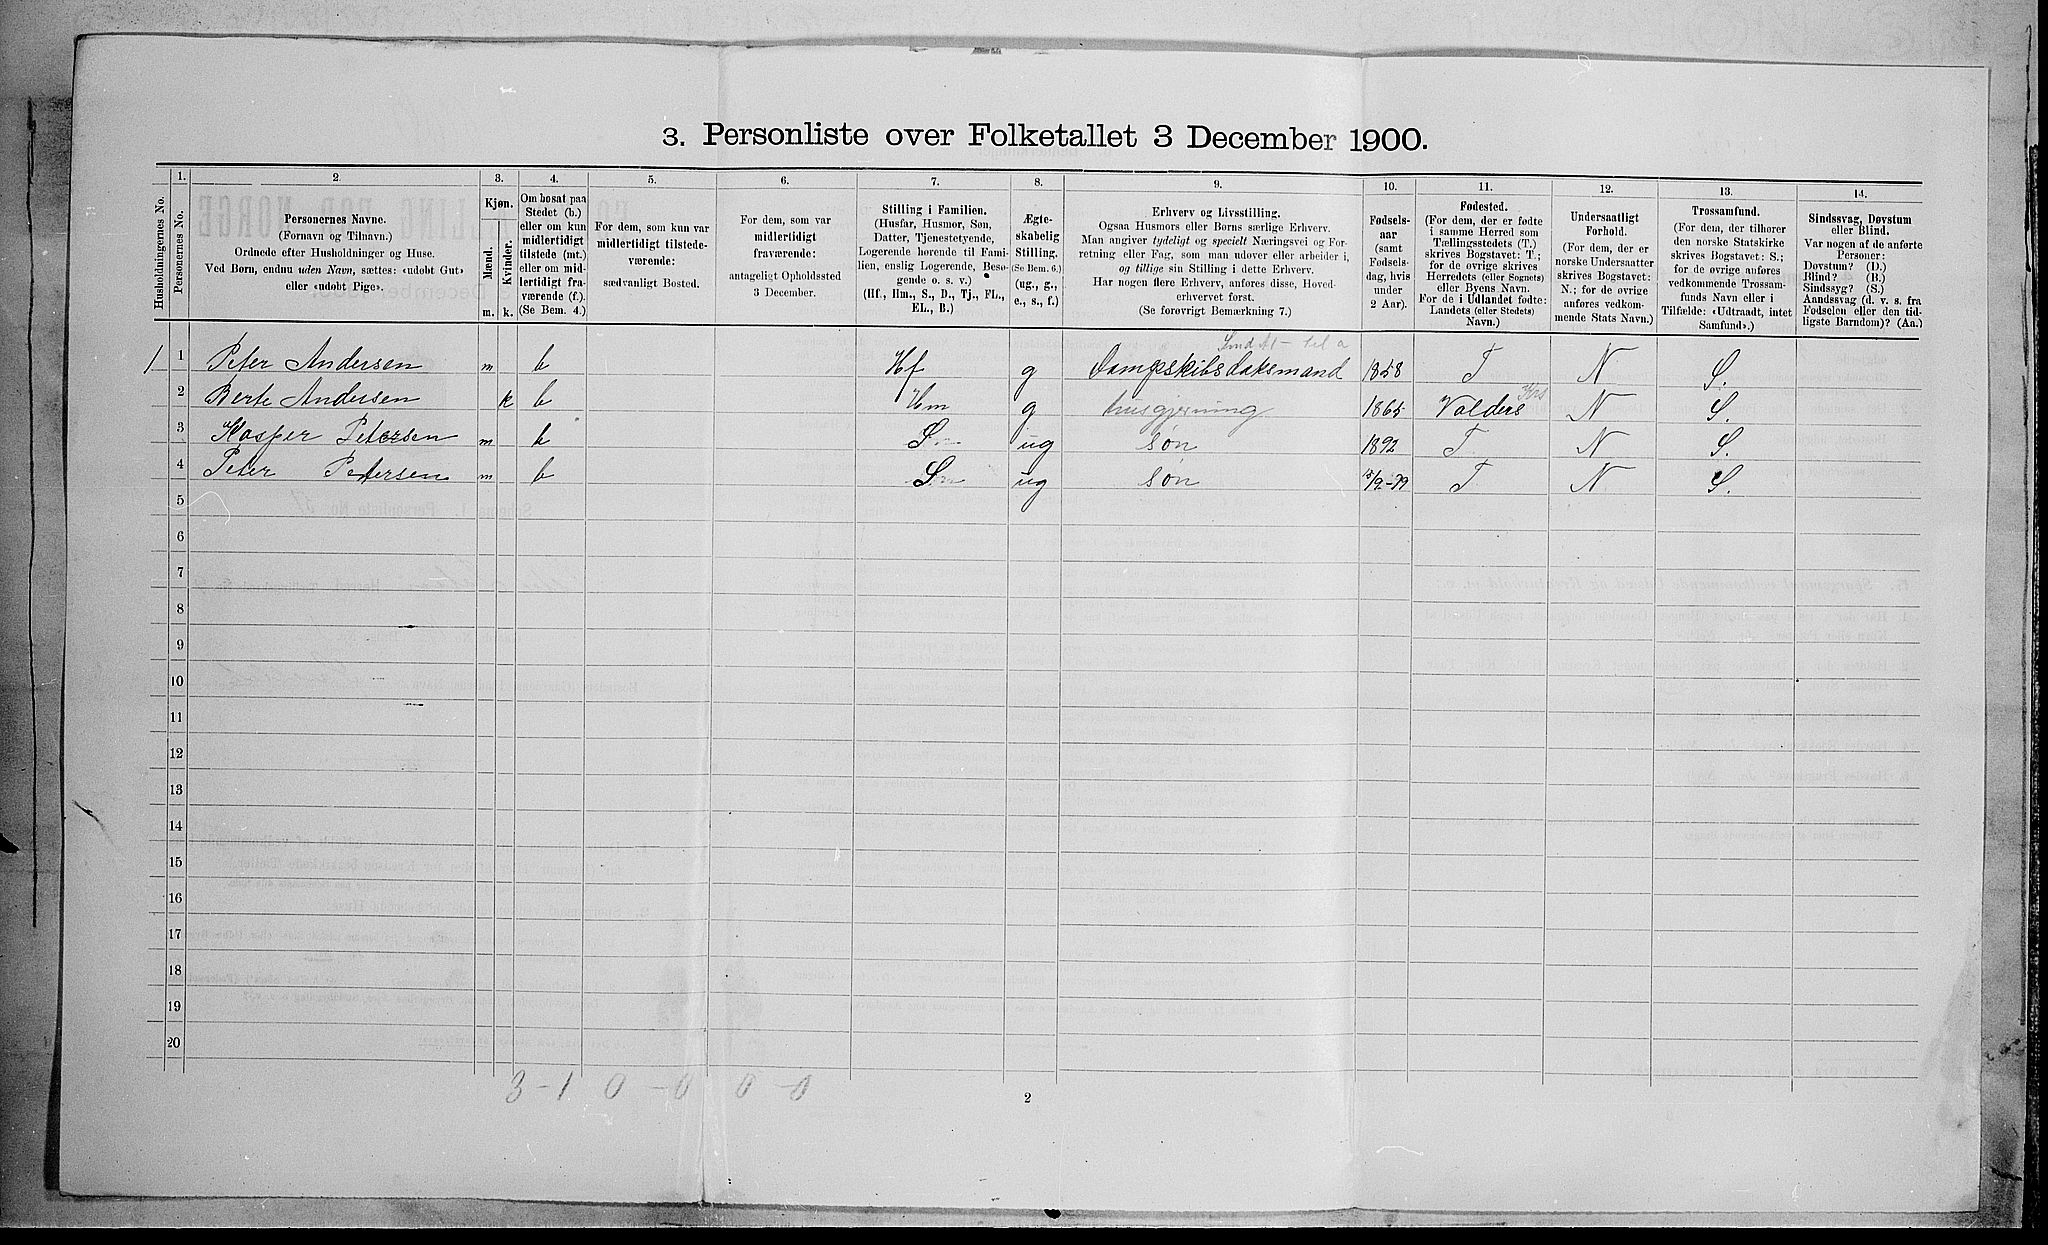 3. Personliste over Folketallet 3 December 1900.
1. 2. 3. 4. 5. 6. 7. 8. 9. 10. 11. 12. 13. 14.
Husholdningernes No.
Personernes No.
Personernes Navne.
(Fornavn og Tilnavn.)
Ordnede efter Husholdninger og Huse.
Ved Børn, endnu uden Navn, sættes: «udøbt Gut»
eller «udøbt Pige».
Kjøn.
Mænd.
Kvinder.
m. k.
Om bosat paa
Stedet (b.)
eller om kun
midlertidigt
tilstede (mt.)
eller om mid-
lertidigt fra-
værende (f.).
(Se Bem. 4.)
For dem, som kun var
midlertidigt tilstede-
værende:
sædvanligt Bosted.
For dem, som var
midlertidigt
fraværende:
antageligt Opholdssted
3 December.
Stilling i Familien.
(Husfar, Husmor, Søn,
Datter, Tjenestetyende,
Logerende hørende til Fami-
lien, enslig Logerende, Besø-
gende o. s. v.)
(Hf., Hm., S., D., Tj., FL.,
EL., B.)
Ægte-
skabelig
Stilling.
(Se Bem. 6.)
(ug., g.,
e., s., f.)
Erhverv og Livsstilling.
Ogsaa Husmors eller Børns særlige Erhverv.
Man angiver tydeligt og specielt Næringsvei og For-
retning eller Fag, som man udøver eller arbeider i,
og tillige sin Stilling i dette Erhverv.
Har nogen flere Erhverv, anføres disse, Hoved-
erhvervet først.
(Se forøvrigt Bemærkning 7.)
Fødsels-
aar
(samt
Fødsels-
dag, hvis
under
2 Aar).
Fødested.
(For dem, der er fødte
i samme Herred som
Tællingsstedets (T.)
skrives Bogstavet: T.;
for de øvrige skrives
Herredets (eller Sognets)
eller Byens Navn.
For de i Udlandet fødte:
Landets (eller Stedets)
Navn.)
Undersaatligt
Forhold.
(For dem, der er
norske Undersaatter
skrives Bogstavet:
N.; for de øvrige
anføres vedkom-
mende Stats Navn.)
Trossamfund.
(For dem, der tilhører
den norske Statskirke
skrives Bogstavet: S.;
for de øvrige anføres
vedkommende Trossam-
funds Navn eller i
Tilfælde: «Udtraadt, intet
Samfund».)
Sindssvag, Døvstum
eller Blind.
Var nogen af de anførte
Personer:
Døvstum? (D.)
Blind? (B.)
Sindssyg? (S.)
Aandssvag (d. v. s. fra
Fødselen eller den tid-
ligste Barndom)? (Aa.)
1 1 Peter Andersen m b Hf g Dampskibsdaksmand 1858 T N S.
2 Berte Andersen k b Hm g husgjerning 1865 Valders N S.
3 Kasper Petersen m b S ug søn 1892 T N S.
4 Peter Petersen m b S ug søn 15/9-99 T N S.
5
6
7
8
9
10
11
12
13
14
15
16
17
18
19
20
3 - 1 0 - 0 0 - 0
2